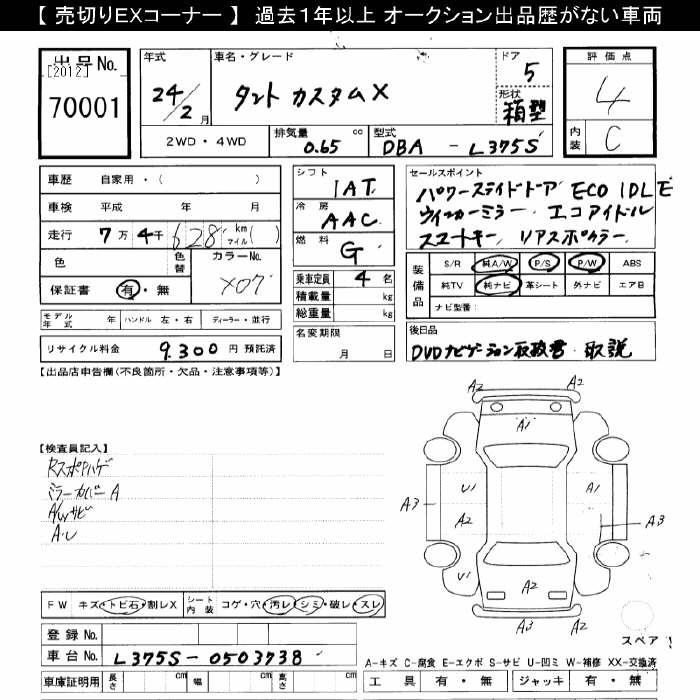 【 売切りEXコーナー 】 過去１年以上 オークション出品歴がない車両
出品No.
[2012]
70001
年式
24/2 月
車名・グレード
タント カスタムX
ドア
5
形状
箱型
評価点
4
内装
C
2WD ・ 4WD
排気量
0.65 cc
型式
DBA - L375S
車歴 自家用・( )
車検 平成 年 月
走行 7万 4千 628 km マイル ( )
色
色替
カラーNo.
X07
保証書 有・無
モデル年式 年 ハンドル 左・右 ディーラー・並行
リサイクル料金 9,300 円 預託済
シフト
IAT
冷房
AAC
燃料
G
乗車定員 4 名
積載量 kg
総重量 kg
名変期限
月 日
セールスポイント
パワースライドドア ECO IDLE
ウィンカーミラー・エコアイドル
スマートキー リアスポイラー
装備品
S/R 純A/W P/S P/W ABS
純TV 純ナビ 革シート 外ナビ エアB
ナビ型番:
後日品
DVDナビゲーション取扱書・取説
【出品店申告欄(不良箇所・欠品・注意事項等)】
【検査員記入】
Rスポイハゲ
ミラーカバーA
A/Wサビ
A・U
A2 A2
A1
A3 U1 A1
A2 A3
U1 A2
A3 A2
スペア
FW キズ・トビ石・割レX シート内装 コゲ・穴・汚レ・シミ・破レ・スレ
登録 No.
車台 No. L375S-0503738
車庫証明用 長さ cm 幅 cm 高さ cm
A-キズ C-腐食 E-エクボ S-サビ U-凹ミ W-補修 XX-交換済
工具 有・無 ジャッキ 有・無